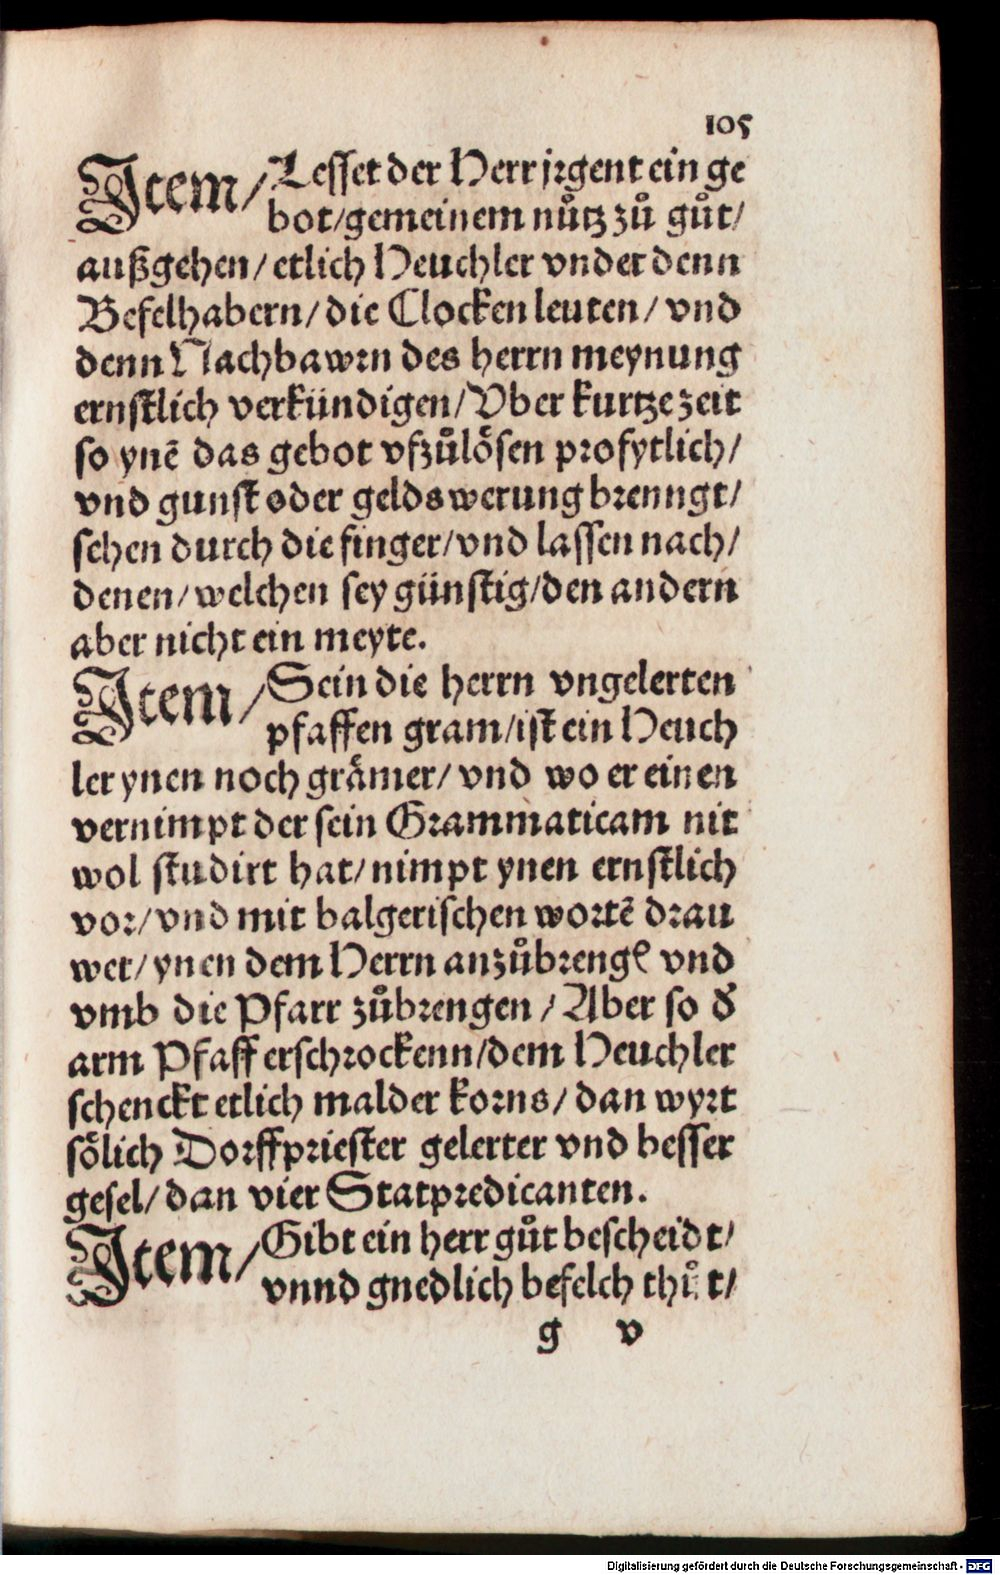 105
Item / Lesset der Herr jrgent ein ge
bot / gemeinem nůtz zů gůt /
außgehen / etlich Heuchler vnder denn
Befelhabern / die Clocken leuten / vnd
denn Nachbawrn des herrn meynung
ernstlich verkündigen / Vber kurtze zeit
so ynē das gebot vfzůlösen profytlich /
vnd gunst oder gelds werung brenngt /
sehen durch die finger / vnd lassen nach /
denen / welchen sey günstig / den andern
aber nicht ein meyte.
Item / Sein die herrn vngelerten
pfaffen gram / ist ein Heuch
ler ynen noch grämer / vnd wo er einen
vernimpt der sein Grammaticam nit
wol studirt hat / nimpt ynen ernstlich
vor / vnd mit balgerischen wortē drau
wet / ynen dem Herrn anzůbrengē vnd
vmb die Pfarr zůbrengen / Aber so d'
arm Pfaff erschrockenn / dem Heuchler
schenckt etlich malder korns / dan wyrt
sölich Dorffpriester gelerter vnd besser
gesel / dan vier Statpredicanten.
Item / Gibt ein herr gůt bescheidt /
vnnd gnedlich befelch thůt /
g v
Digitalisierung gefördert durch die Deutsche Forschungsgemeinschaft - DFG